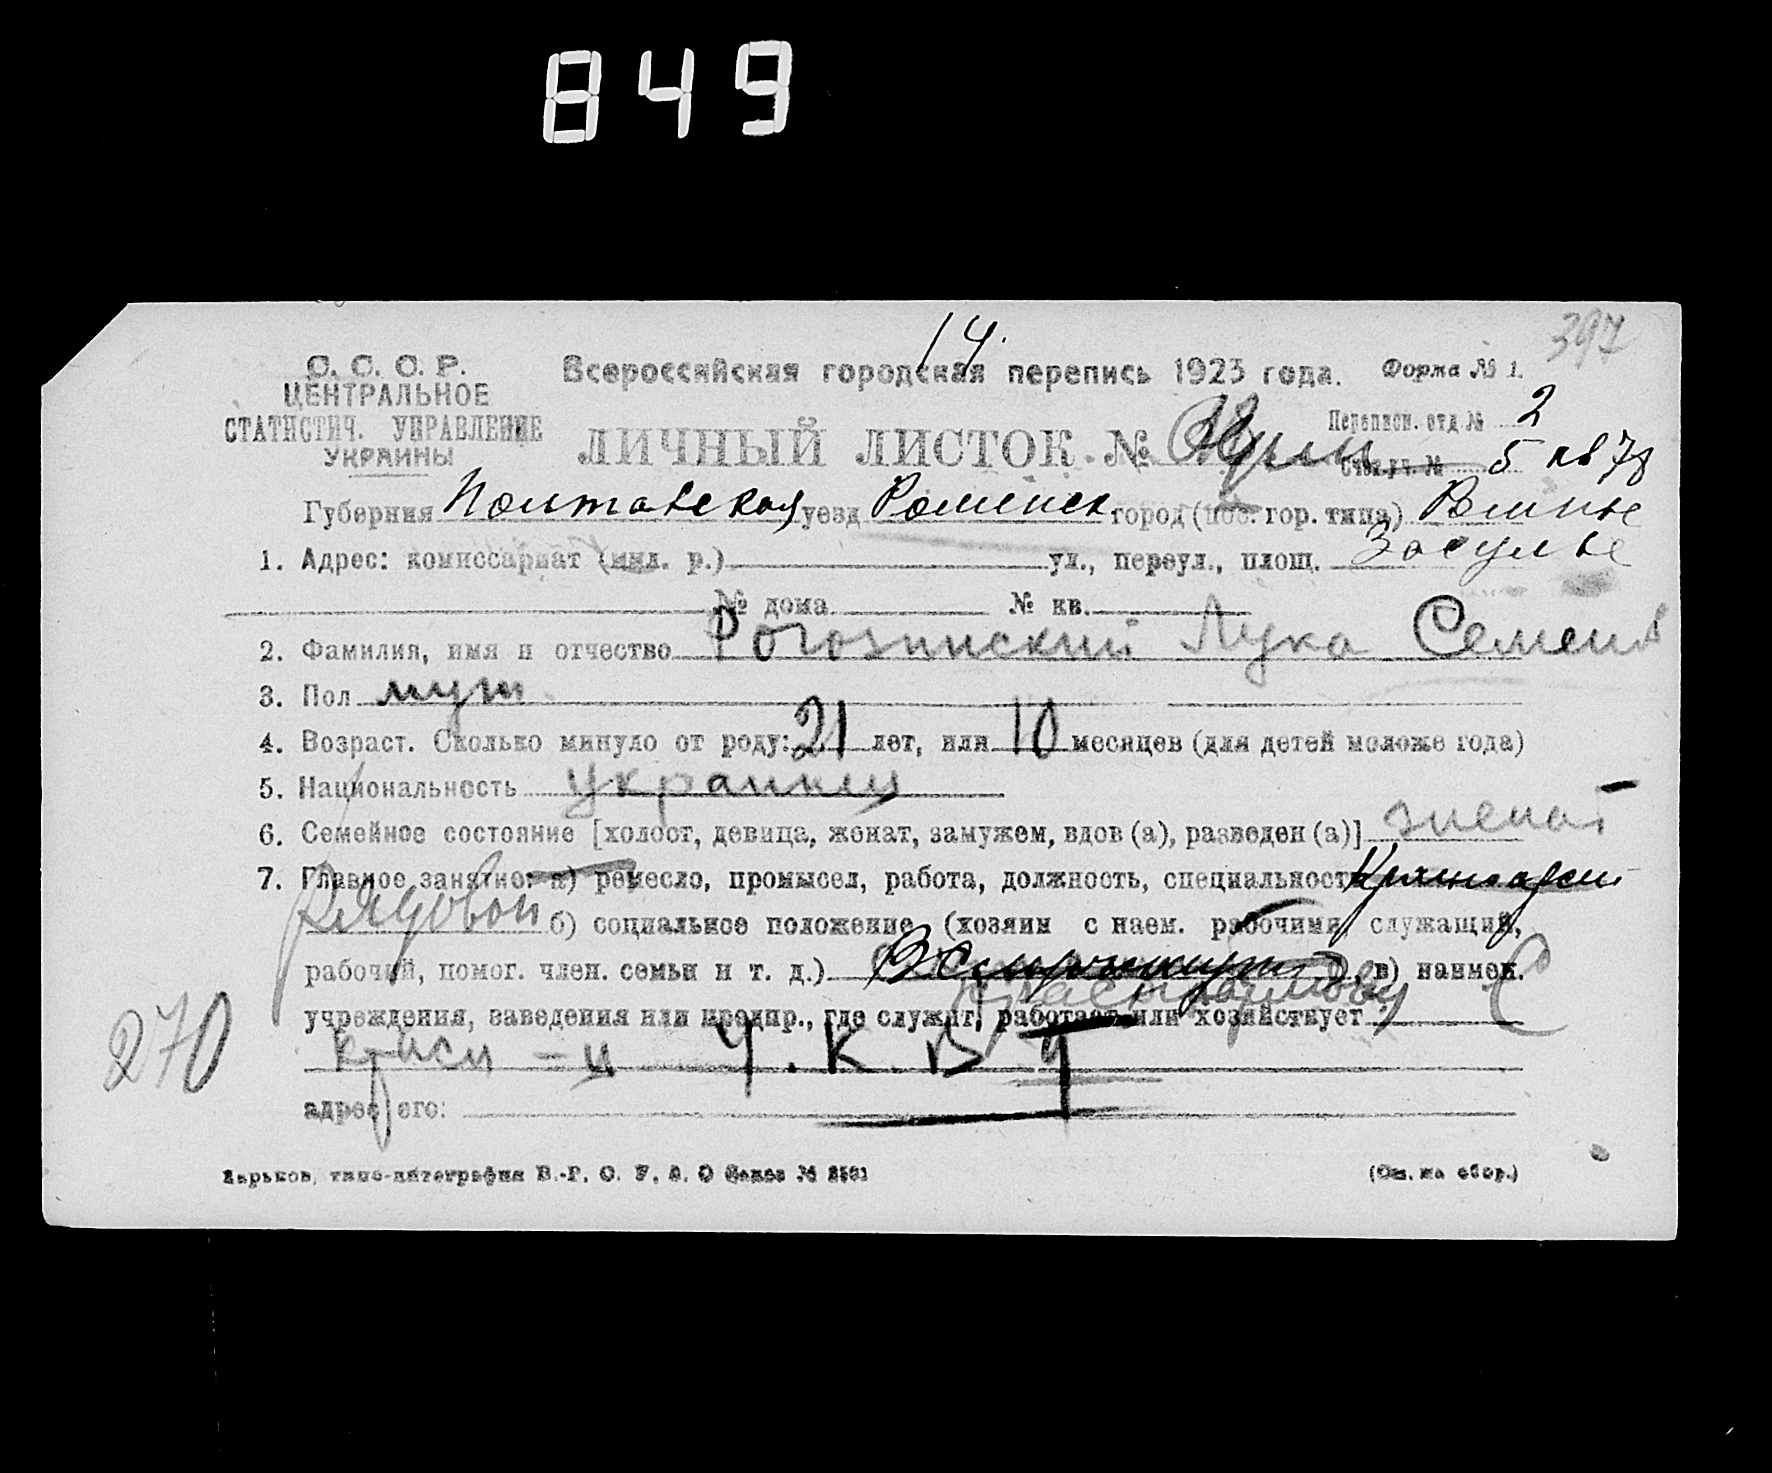 849
14.
397
С. С. С. Р.
ЦЕНТРАЛЬНОЕ
СТАТИСТИЧ. УПРАВЛЕНИЕ
УКРАИНЫ
Всероссийская городская перепись 1923 года.
Форма № 1.
ЛИЧНЫЙ ЛИСТОК №
Переписн. отд. № 2
Счетн. уч. № 5 кв 78
Губерния Полтавская уезд Роменск город (пос. гор. типа) Ромны
1. Адрес: комиссариат (мил. р.) ул., переул., площ. Засулье
№ дома № кв.
2. Фамилия, имя и отчество Рогозинский Лука Семенов
3. Пол муж
4. Возраст. Сколько минуло от роду: 21 лет, или 10 месяцев (для детей моложе года)
5. Национальность украинец
6. Семейное состояние [холост, девица, женат, замужем, вдов (а), разведен (а)] женат
7. Главное занятие: а) ремесло, промысел, работа, должность, специальность Красноарм
Рядовой б) социальное положение (хозяин с наем. рабочими, служащий,
рабочий, помог. член. семьи и т. д.) в) наимен.
учреждения, заведения или предпр., где служит, работает или хозяйствует
270
адрес его:
Харьков, типо-литография В.-Р. О. У. В. О Заказ №
(См. на обор.)